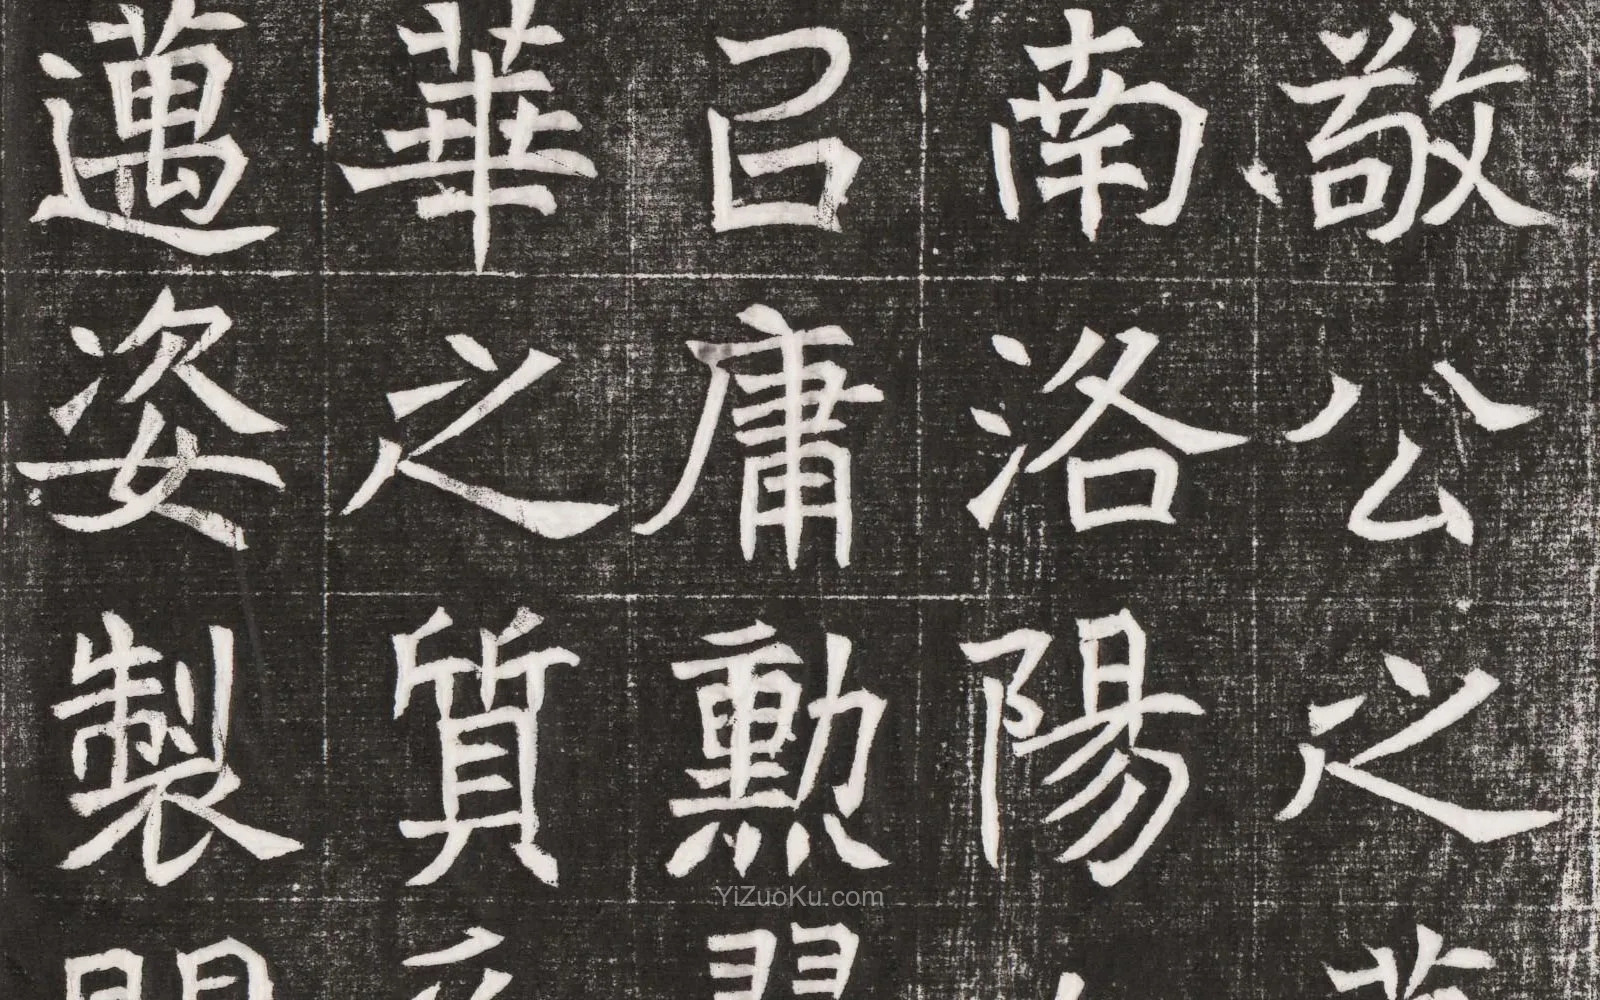 敬公之
南洛陽
㠯庸勳
華之質
邁姿製
YiZuoKu.com